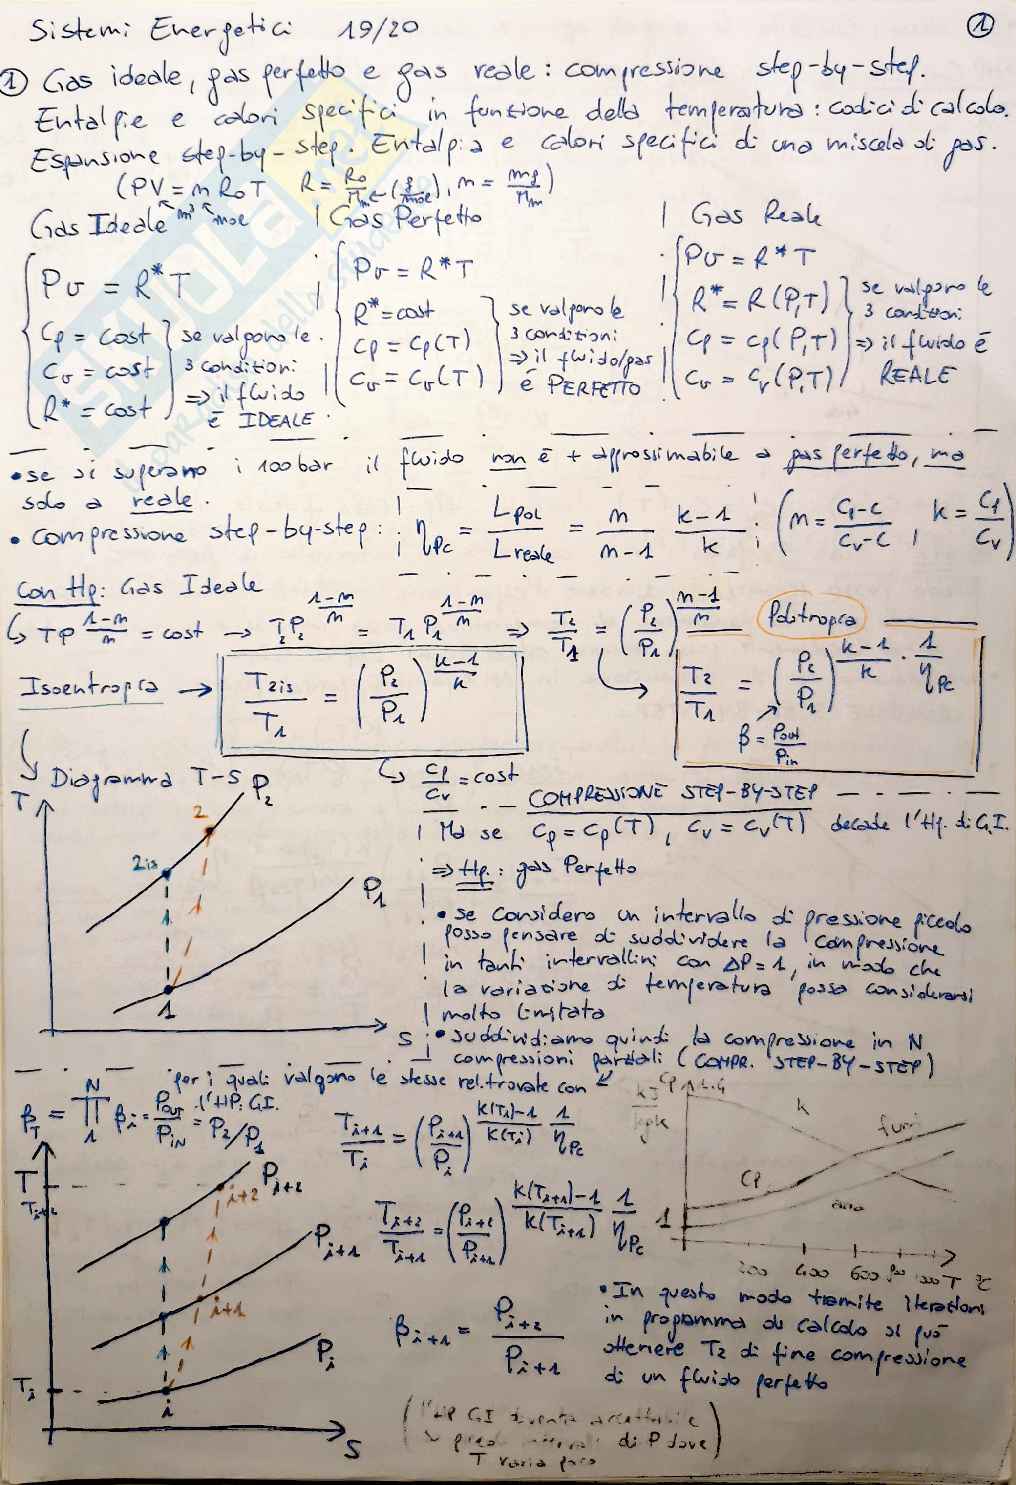 Sistemi Energetici 19/20
1
1 Gas ideale, gas perfetto e gas reale: compressione step-by-step.
Entalpie e calori specifici in funzione della temperatura: codici di calcolo.
Espansione step-by-step. Entalpia e calori specifici di una miscela di gas.
(PV = n R₀ T R = R₀/Mm ← (g/mole), n = mg/Mm)
m³ mole
Gas Ideale | Gas Perfetto | Gas Reale
Pv = R*T
Cp = cost
Cv = cost
R* = cost
se valgono le
3 condizioni
⇒ il fluido
è IDEALE
Pv = R*T
R* = cost
Cp = Cp(T)
Cv = Cv(T)
se valgono le
3 condizioni
⇒ il fluido/gas
è PERFETTO
Pv = R*T
R* = R(P,T)
Cp = Cp(P,T)
Cv = Cv(P,T)
se valgono le
3 condizioni
⇒ il fluido è
REALE
• se si superano i 100bar il fluido non è + approssimabile a gas perfetto, ma
solo a reale.
• compressione step-by-step: ηPc = Lpol/Lreale = n/(n-1) (k-1)/k (n = (Cp-C)/(Cv-C), k = Cp/Cv)
Con Hp: Gas Ideale
↳ TP^((1-n)/n) = cost → T₂P₂^((1-n)/n) = T₁P₁^((1-n)/n) ⇒ T₂/T₁ = (P₂/P₁)^((n-1)/n) Politropica
Isoentropica → T₂is/T₁ = (P₂/P₁)^((k-1)/k)
T₂/T₁ = (P₂/P₁)^((k-1)/k · 1/ηPc)
β = Pout/Pin
↳ Cp/Cv = cost
Diagramma T-S
T
P₂
2
2is
P₁
1
S
COMPRESSIONE STEP-BY-STEP
Ma se Cp = Cp(T), Cv = Cv(T) decade l'Hp. di G.I.
⇒ Hp.: gas Perfetto
• se considero un intervallo di pressione piccolo
posso pensare di suddividere la compressione
in tanti intervallini con ΔP=1, in modo che
la variazione di temperatura possa considerarsi
molto limitata
• suddividiamo quindi la compressione in N
compressioni parziali (COMPR. STEP-BY-STEP)
per i quali valgono le stesse rel. trovate con
l'HP: GI.
βT = ∏ N 1 βi = Pout/PiN = P₂/P₁
Ti+1/Ti = (Pi+1/Pi)^((k(Ti)-1)/k(Ti) 1/ηPc)
Ti+2/Ti+1 = (Pi+2/Pi+1)^((k(Ti+1)-1)/k(Ti+1) 1/ηPc)
βi+1 = Pi+2/Pi+1
T
Ti+2
Pi+2
i+2
Pi+1
i+1
Pi
Ti
i
S
kJ/kgK
Cp
k
fumi
Cp
aria
1
200 400 600 800 1000 T °C
• In questo modo tramite iterazioni
in programma di calcolo si può
ottenere T2 di fine compressione
di un fluido perfetto
(l'HP GI diventa accettabile
di P dove
T varia poco)